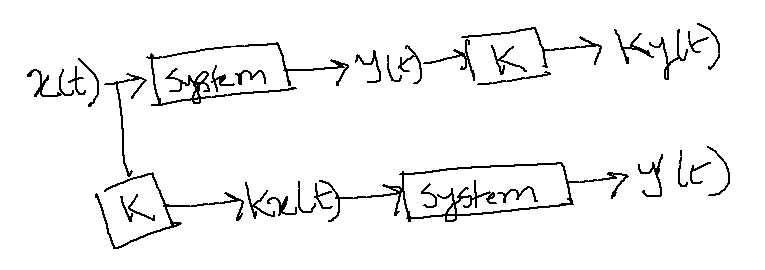 x(t) → System → y(t) → K → Ky(t)
K → Kx(t) → System → y'(t)